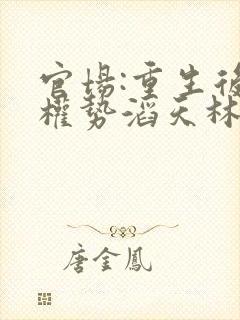 官場:重生後
權勢滔天林
唐金鳳